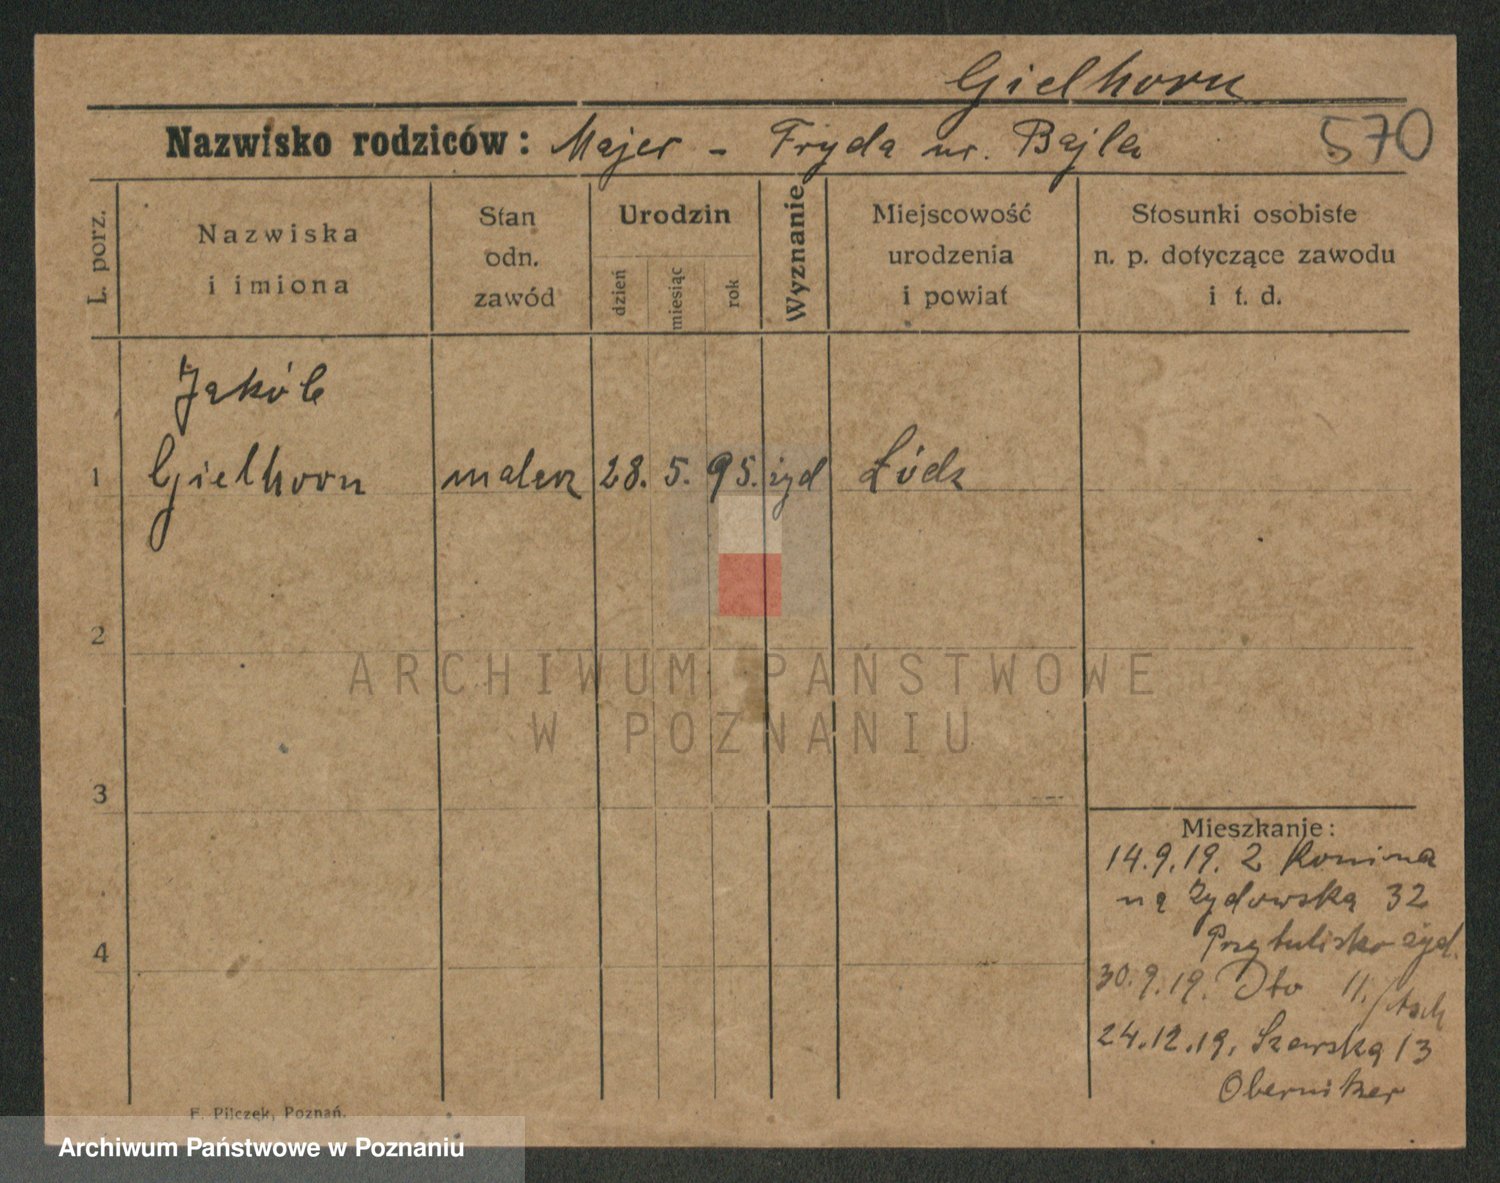 Gielhorn
Nazwisko rodziców: Majer - Fryda ur. Bajla 570
L. porz.
Nazwiska
i imiona
Stan
odn.
zawód
Urodzin
dzień
miesiąc
rok
Wyznanie
Miejscowość
urodzenia
i powiat
Stosunki osobiste
n. p. dotyczące zawodu
i t. d.
Jakób
1 Gielhorn malarz 28. 5. 95. żyd Łódz
2
3
4
Mieszkanie:
14.9.19. 2
na Żydowską 32
Przytulisko żyd.
30.9.19. Dto 11./
24.12.19. Szewska 13
Obernitzer
F. Pilczek, Poznań.
ARCHIWUM PAŃSTWOWE
W POZNANIU
Archiwum Państwowe w Poznaniu